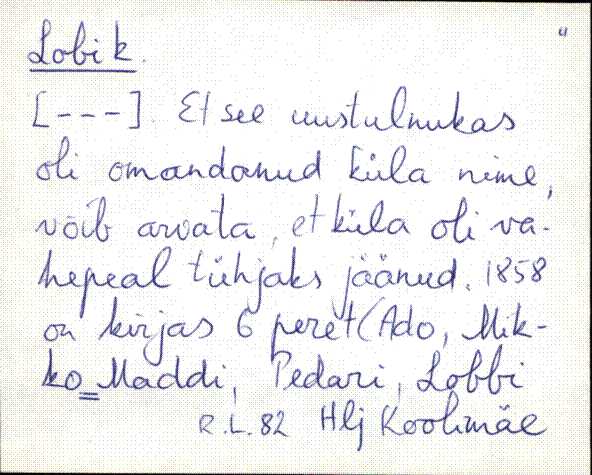 "
Lobik.
[---]. Et see uustulnukas
oli omandanud küla nime,
võib arvata, et küla oli va-
hepeal tühjaks jäänud. 1858
on kirjas 6 peret (Ado, Mik-
ko=Maddi, Pedari, Lobbi
R.L.82 Hlj Koolimäe